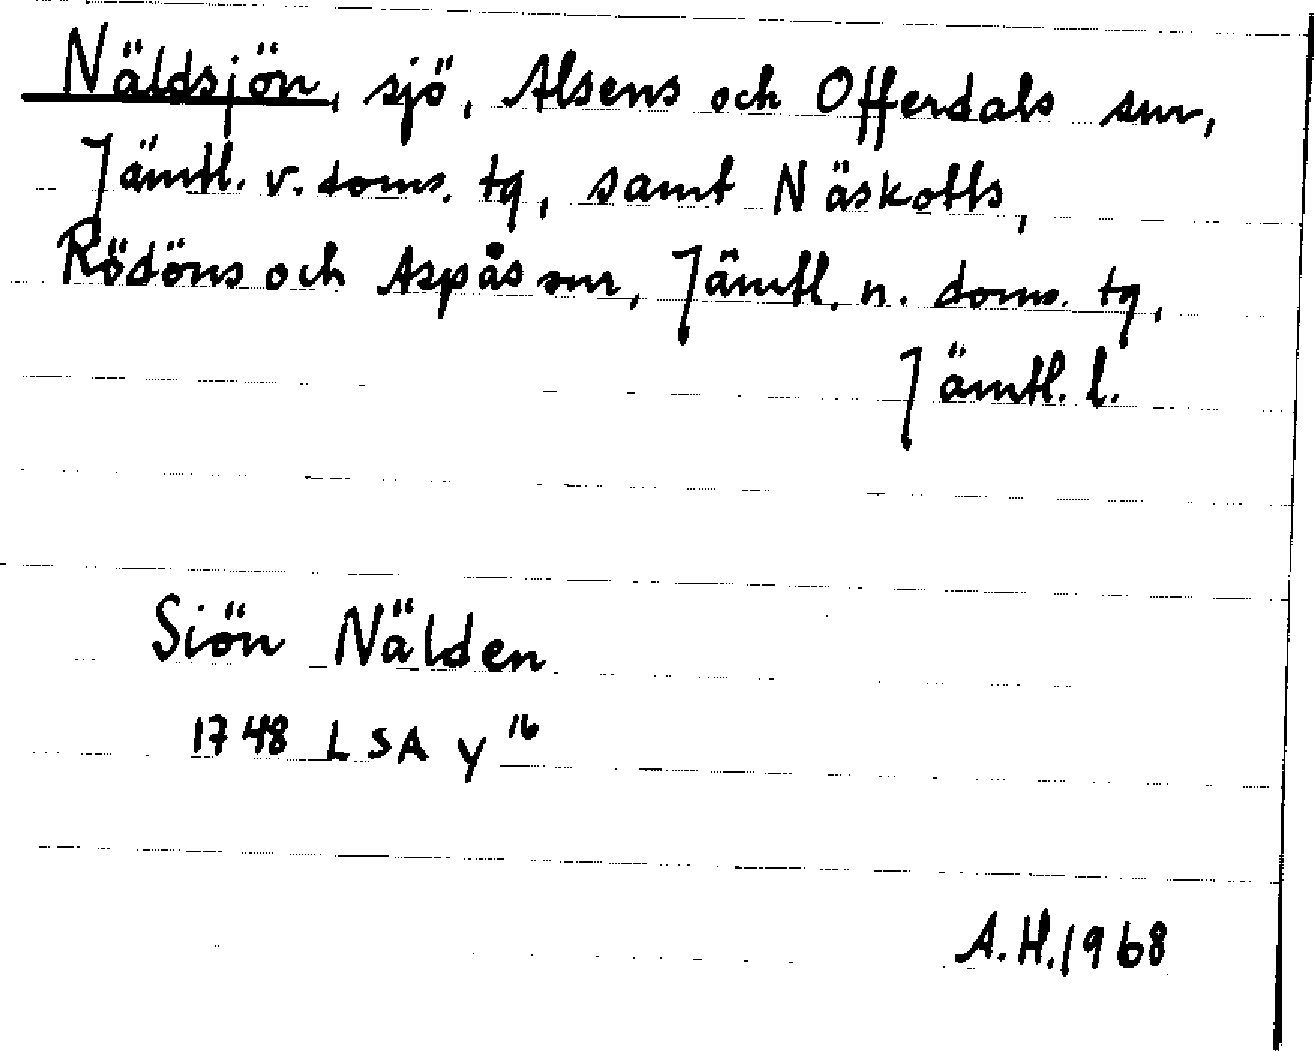 Näldsjön, sjö, Alsens och Offerdals snr,
Jämtl. v. doms. tg, samt Näskotts,
Rödöns och Aspås snr, Jämtl. n. doms. tg,
Jämtl. l.
Siön Nälden
1748 LSA Y 16
A.H. 1968